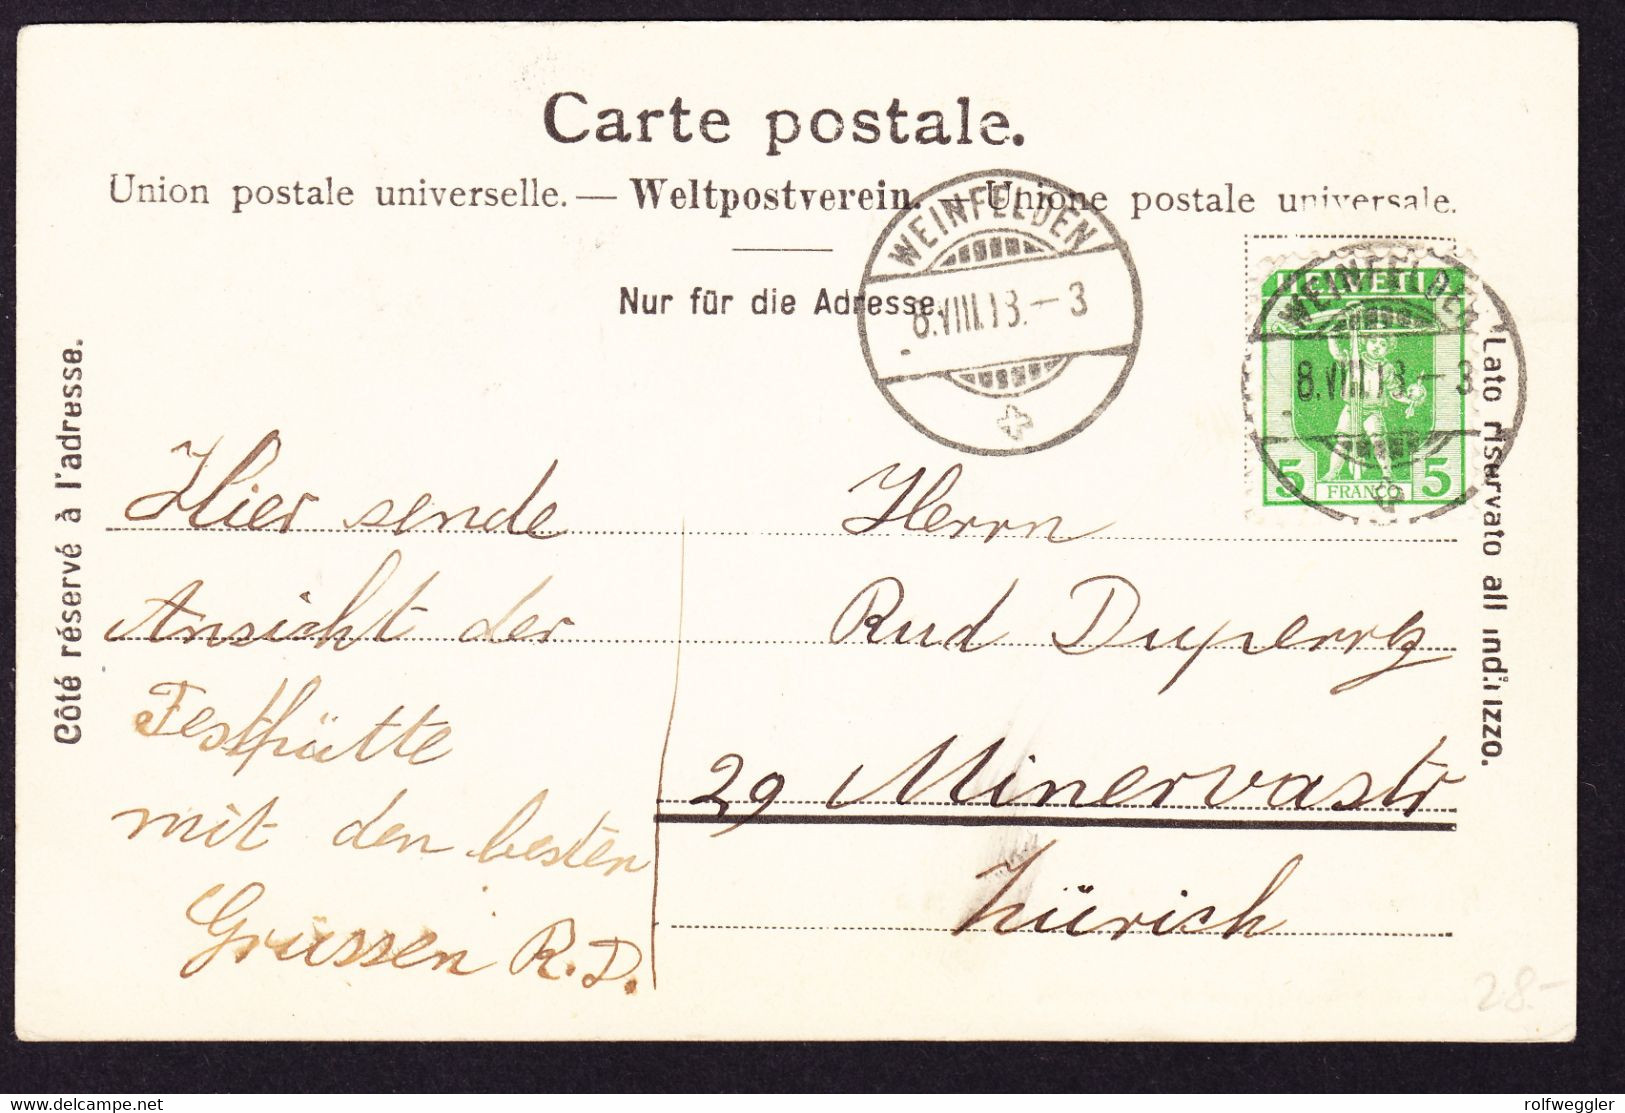 Carte postale.
Union postale universelle. — Weltpostverein. — Unione postale universale.
Nur für die Adresse.
Côté réservé à l'adresse.
Lato riservato all indirizzo.
WEINFELDEN
8.VIII.13.—3
HELVETIA
WEINFELDEN
8.VIII.13.—3
5 FRANCO 5
Hier sende
Ansicht der
Festhütte
mit den besten
Grüssen R.D.
Herrn
Rud
29 Minervastr
Zürich
28.-
rolfweggler